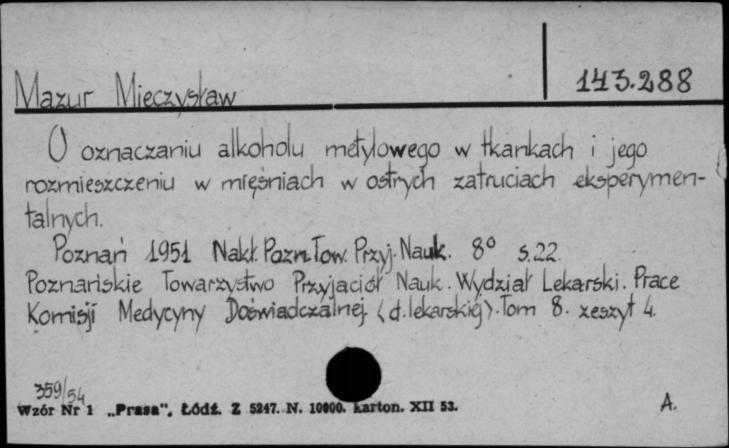 143.288
Mazur Mieczysław
O oznaczaniu alkoholu metylowego w tkankach i jego
rozmieszczeniu w mięśniach w ostrych zatruciach eksperymen-
talnych.
Poznań 1951 Nakł. Pozn. Tow. Przyj. Nauk. 8° s. 22.
Poznańskie Towarzystwo Przyjaciół Nauk. Wydział Lekarski. Prace
Komisji Medycyny Doświadczalnej. (d. lekarskiej). Tom 8. zeszyt 4.
359/54
Wzór Nr 1 „Prasa”, Łódź. Z 5247. N. 10000. karton. XII 53.
A.